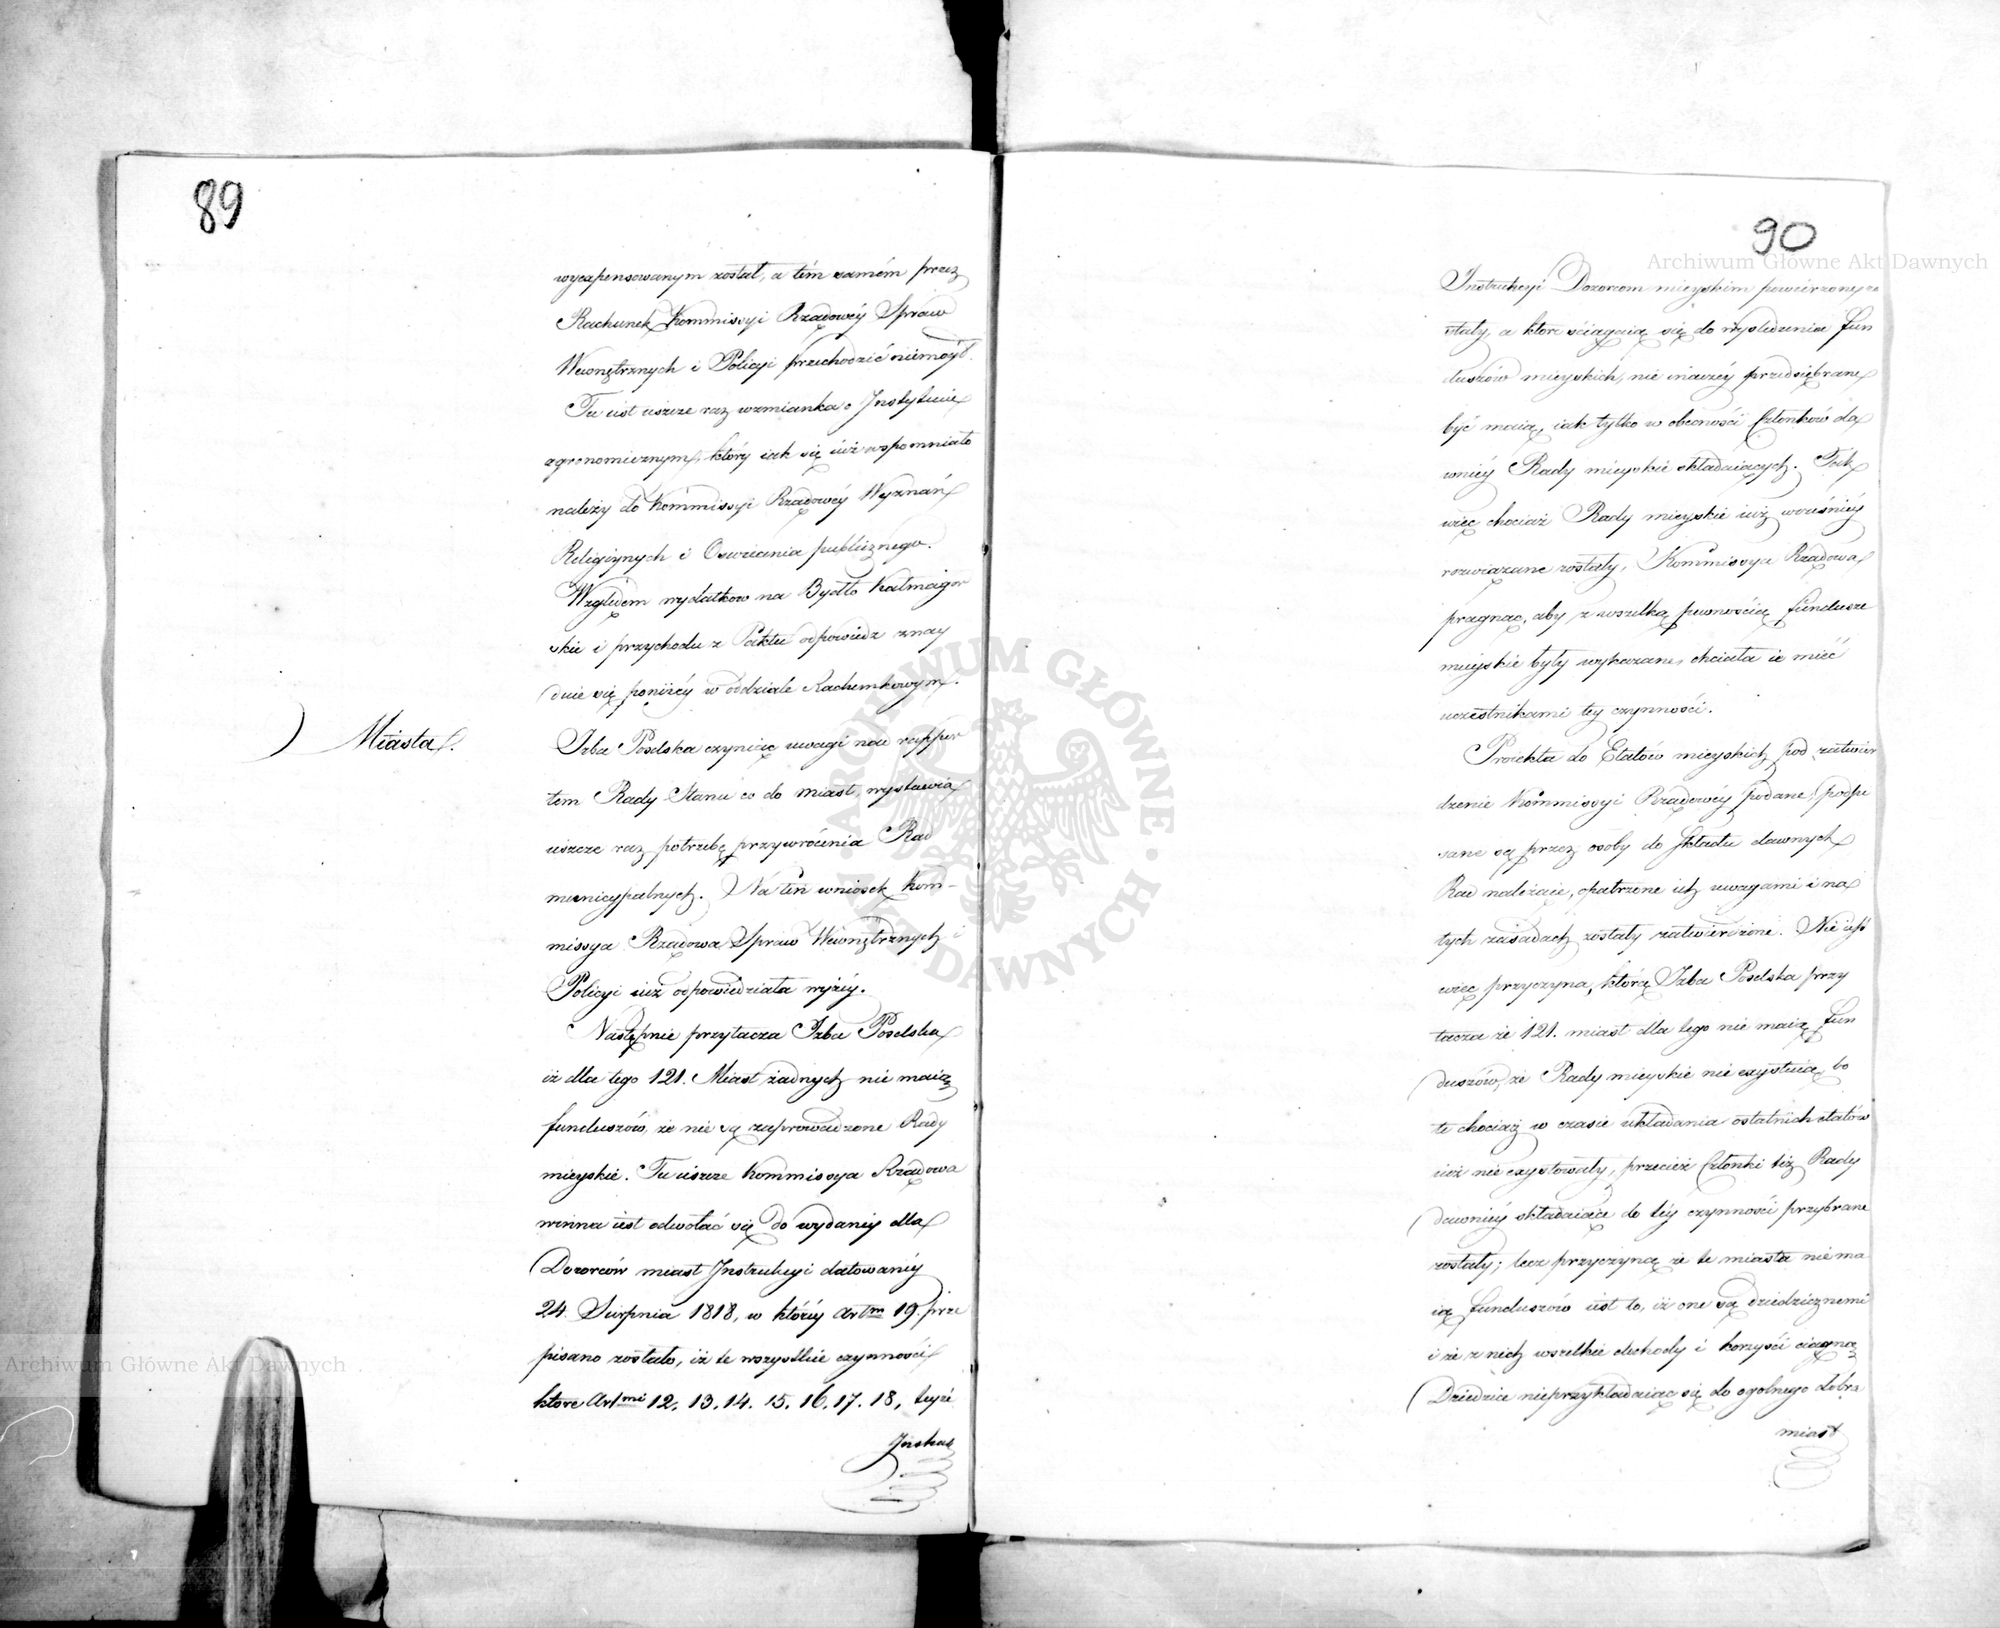 89
wyexpensowanym został, a tém samém przez
Rachunek Kommissyi Rządowéy Spraw
Wewnętrznych i Policyi przechodzić niemógł.
Tu iest ieszcze raz wzmianka o Instytucie
agronomicznym, który iak się iuż wspomniało
należy do Kommissyi Rządowéy Wyznań
Religiynych i Oświecenia publicznego.
Względem wydatków na Bydło Kalmugor
skie i przychodu z Paktu odpowiedz znay
duie się poniżéy w oddziale Rachunkowym.
Miasta.
Izba Poselska czyniąc uwagi nad rappor
tem Rady Stanu co do miast, wystawia
ieszcze raz potrzebę przywrócenia Rad
municypalnych. Na ten wniosek Kom-
missya Rządowa Spraw Wewnętrznych i
Policyi iuż odpowiedziała wyżéy.
Następnie przytacza Izba Poselska
iż dla tego 121. Miast żadnych nie maią
funduszów, że nie są zaprowadzone Rady
mieyskie. Tu ieszcze Kommissya Rządowa
winna iest odwołać się do wydanéy dla
Dozorców miast Instrukcyi datowanéy
24. Sierpnia 1818, w któréy Artm 19. prze
pisano zostało, iż te wszystkie czynności
które Artmi 12. 13. 14. 15. 16. 17. 18, teyże
Instruk
90
Instrukcyi Dozorcom mieyskim powierzony zo
stały, a które ściągaią się do wyśledzenia fun
duszów mieyskich, nie inaczéy przedsiębrane
być maią, iak tylko w obecności Członków da
wniéy Rady mieyskie składaiących. Tak
więc chociaż Rady mieyskie iuż wcześniéy
rozwiązane zostały, Kommissya Rządowa
pragnąc, aby z wszelką pewnością fundusze
mieyskie były wykazane, chciała ie mieć
uczestnikami téy czynności.
Proiekta do Etatów mieyskich pod zatwier
dzenie Kommissyi Rządowéy podane, podpi
sane są przez osoby do składu dawnych
Rad należące, opatrzone ich uwagami i na
tych zasadach zostały zatwierdzone. Nie iest
więc przyczyna, którą Izba Poselska przy
tacza że 121. miast dla tego nie maią fun
duszów, że Rady mieyskie nie exystuią, bo
te chociaż w czasie układania ostatnich etatów
iuż nie exystowały, przecież Członki téż Rady
dawniéy składaiące do téy czynności przybrane
zostały; lecz przyczyną że te miasta nie ma
ią funduszów iest to, iż one są dziedzicznemi
i że z nich wszelkie dochody i korzyści ciągną
Dziedzice nieprzykładaiąc się do ogólnego dobra
miast
Archiwum Główne Akt Dawnych
Archiwum Główne Akt Dawnych
ARCHIWUM GŁÓWNE
AKT DAWNYCH